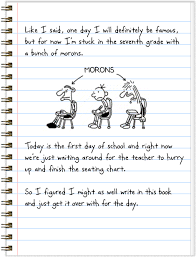 Like I said, one day I will definitely be famous,
but for now I'm stuck in the seventh grade with
a bunch of morons.
MORONS
Today is the first day of school and right now
we're just waiting around for the teacher to hurry
up and finish the seating chart.
So I figured I might as well write in this book
and just get it over with for the day.